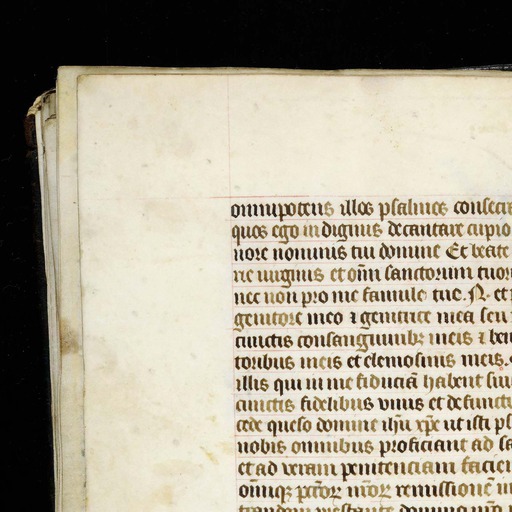 omnipotens illos psalmos consecra
quos ego indignus decantare cupio
nore nominis tui domine Et beate
rie uirginis et om̄ sanctorum tuor
nec non pro me famule tue. N. et
genitore meo ⁊ genitrice mea seu
cunctis consanguinibꝫ meis ⁊ ben
toribus meis et elemosinis meis.
illis qui in me fiduciā habent siu
cunctis fidelibus uiuis et defuncti
cede queso domine ihū xp̄e ut isti ps
nobis omnibus proficiant ad sa
et ad veram penitenciam facien
om̄iqꝫ pctōꝝ nr̄oꝝ remissionē